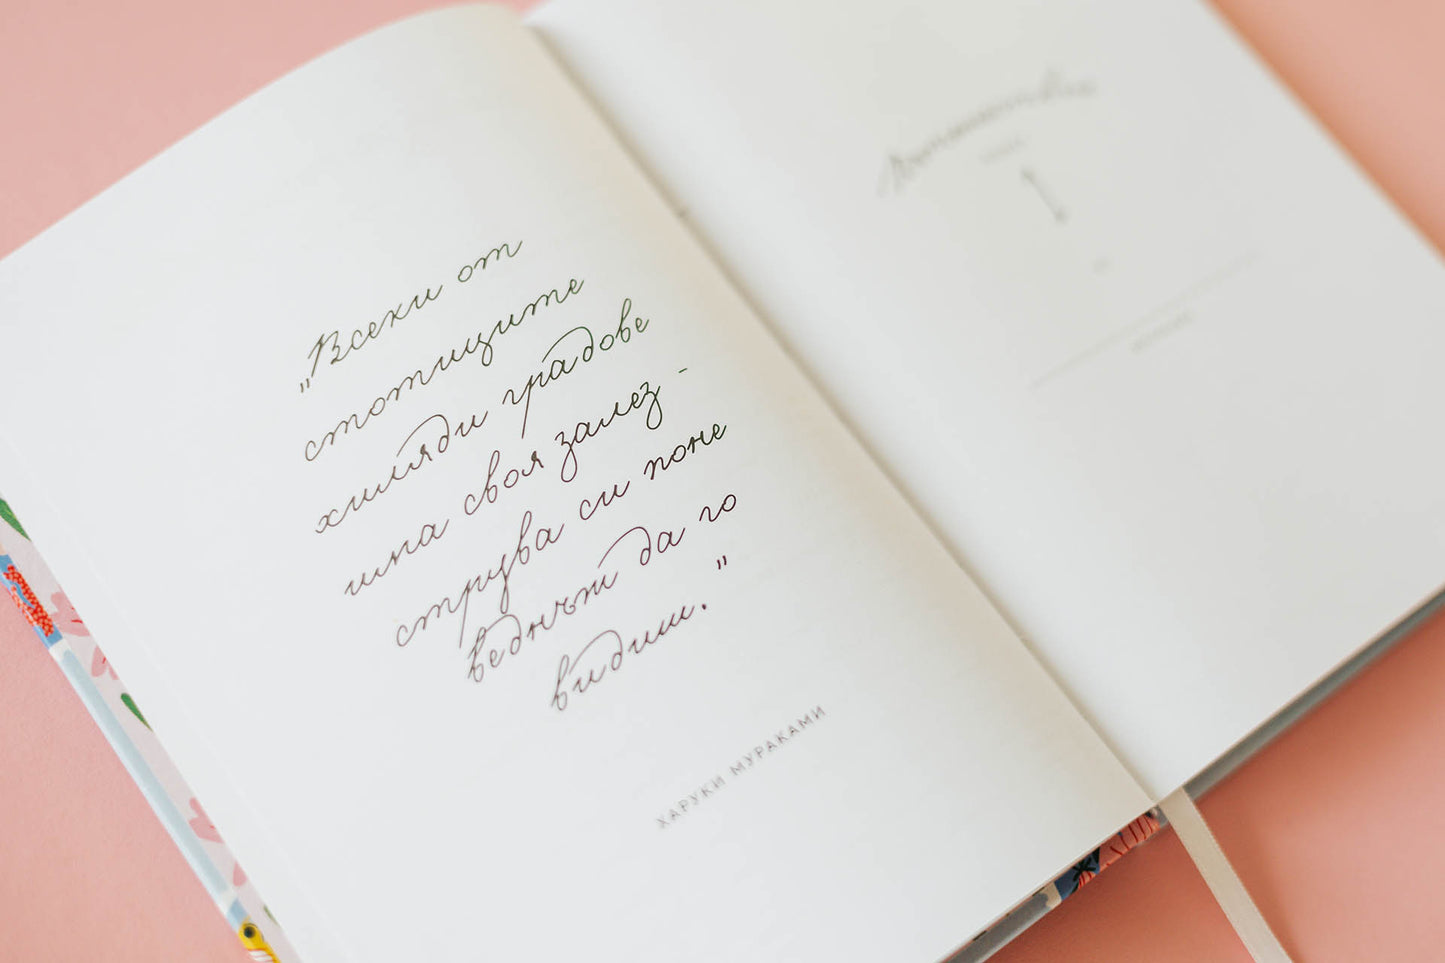 „Всеки от
стотиците
хиляди градове
има своя залез -
струва си поне
веднъж да го
видиш."
ХАРУКИ МУРАКАМИ